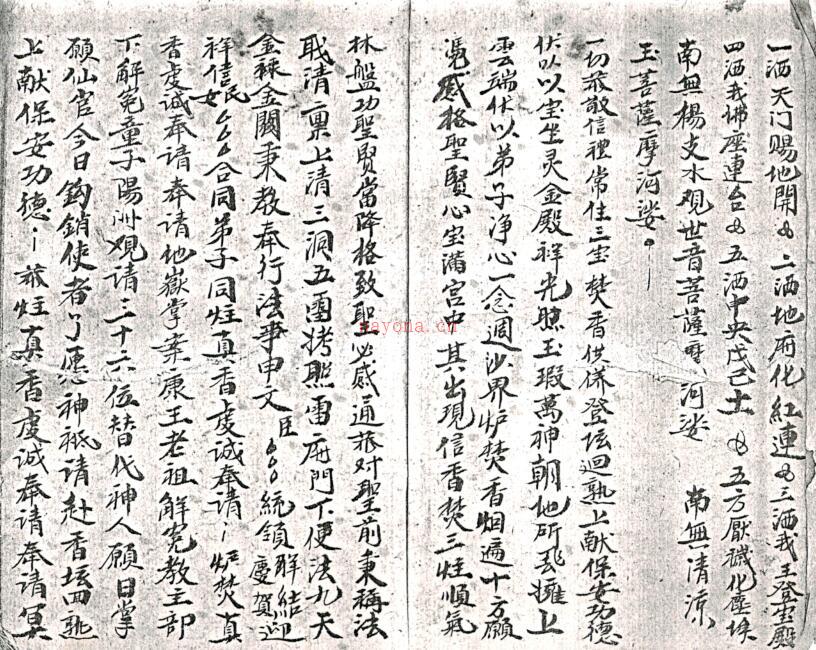 一洒天门赐地開 二洒地府化紅連 三洒我王登宝殿
四洒我拂座連台 五洒中央戊己土 五方厭穢化塵埃
南無楊支水观世音菩薩摩河娑 南無清凉
玉菩薩摩河娑
一切恭敬信禮常住三宝焚香供養登坛迴熟上献保安功德
伏以以宝坐灵金殿祥光照玉瑕萬神朝他所飛擁上
雲端伏以弟子净心一念週沙界炉焚香烟遍十方願
憑感格聖賢心宝滿宫中其出現信香焚三炷順氣
林盤功聖贤當降格致聖必感通兹对聖前秉称法
职清禀上清三洞五雷拷照雷府門下便法九天
金錄金闕秉教奉行法事申文臣 統領解結迎
慶賀祥信民女 合同弟子同炷真香虔诚奉请 炉焚真
香虔诚奉请奉请地嶽掌案康王老祖解冤教主部
下解冤童子陽洲观请三十六位替代神人願日掌
願仙官今日鈎銷使者了愿神祗请赴香坛四熟
上献保安功德 兹炷真香虔诚奉请奉请冥
nayona.cn